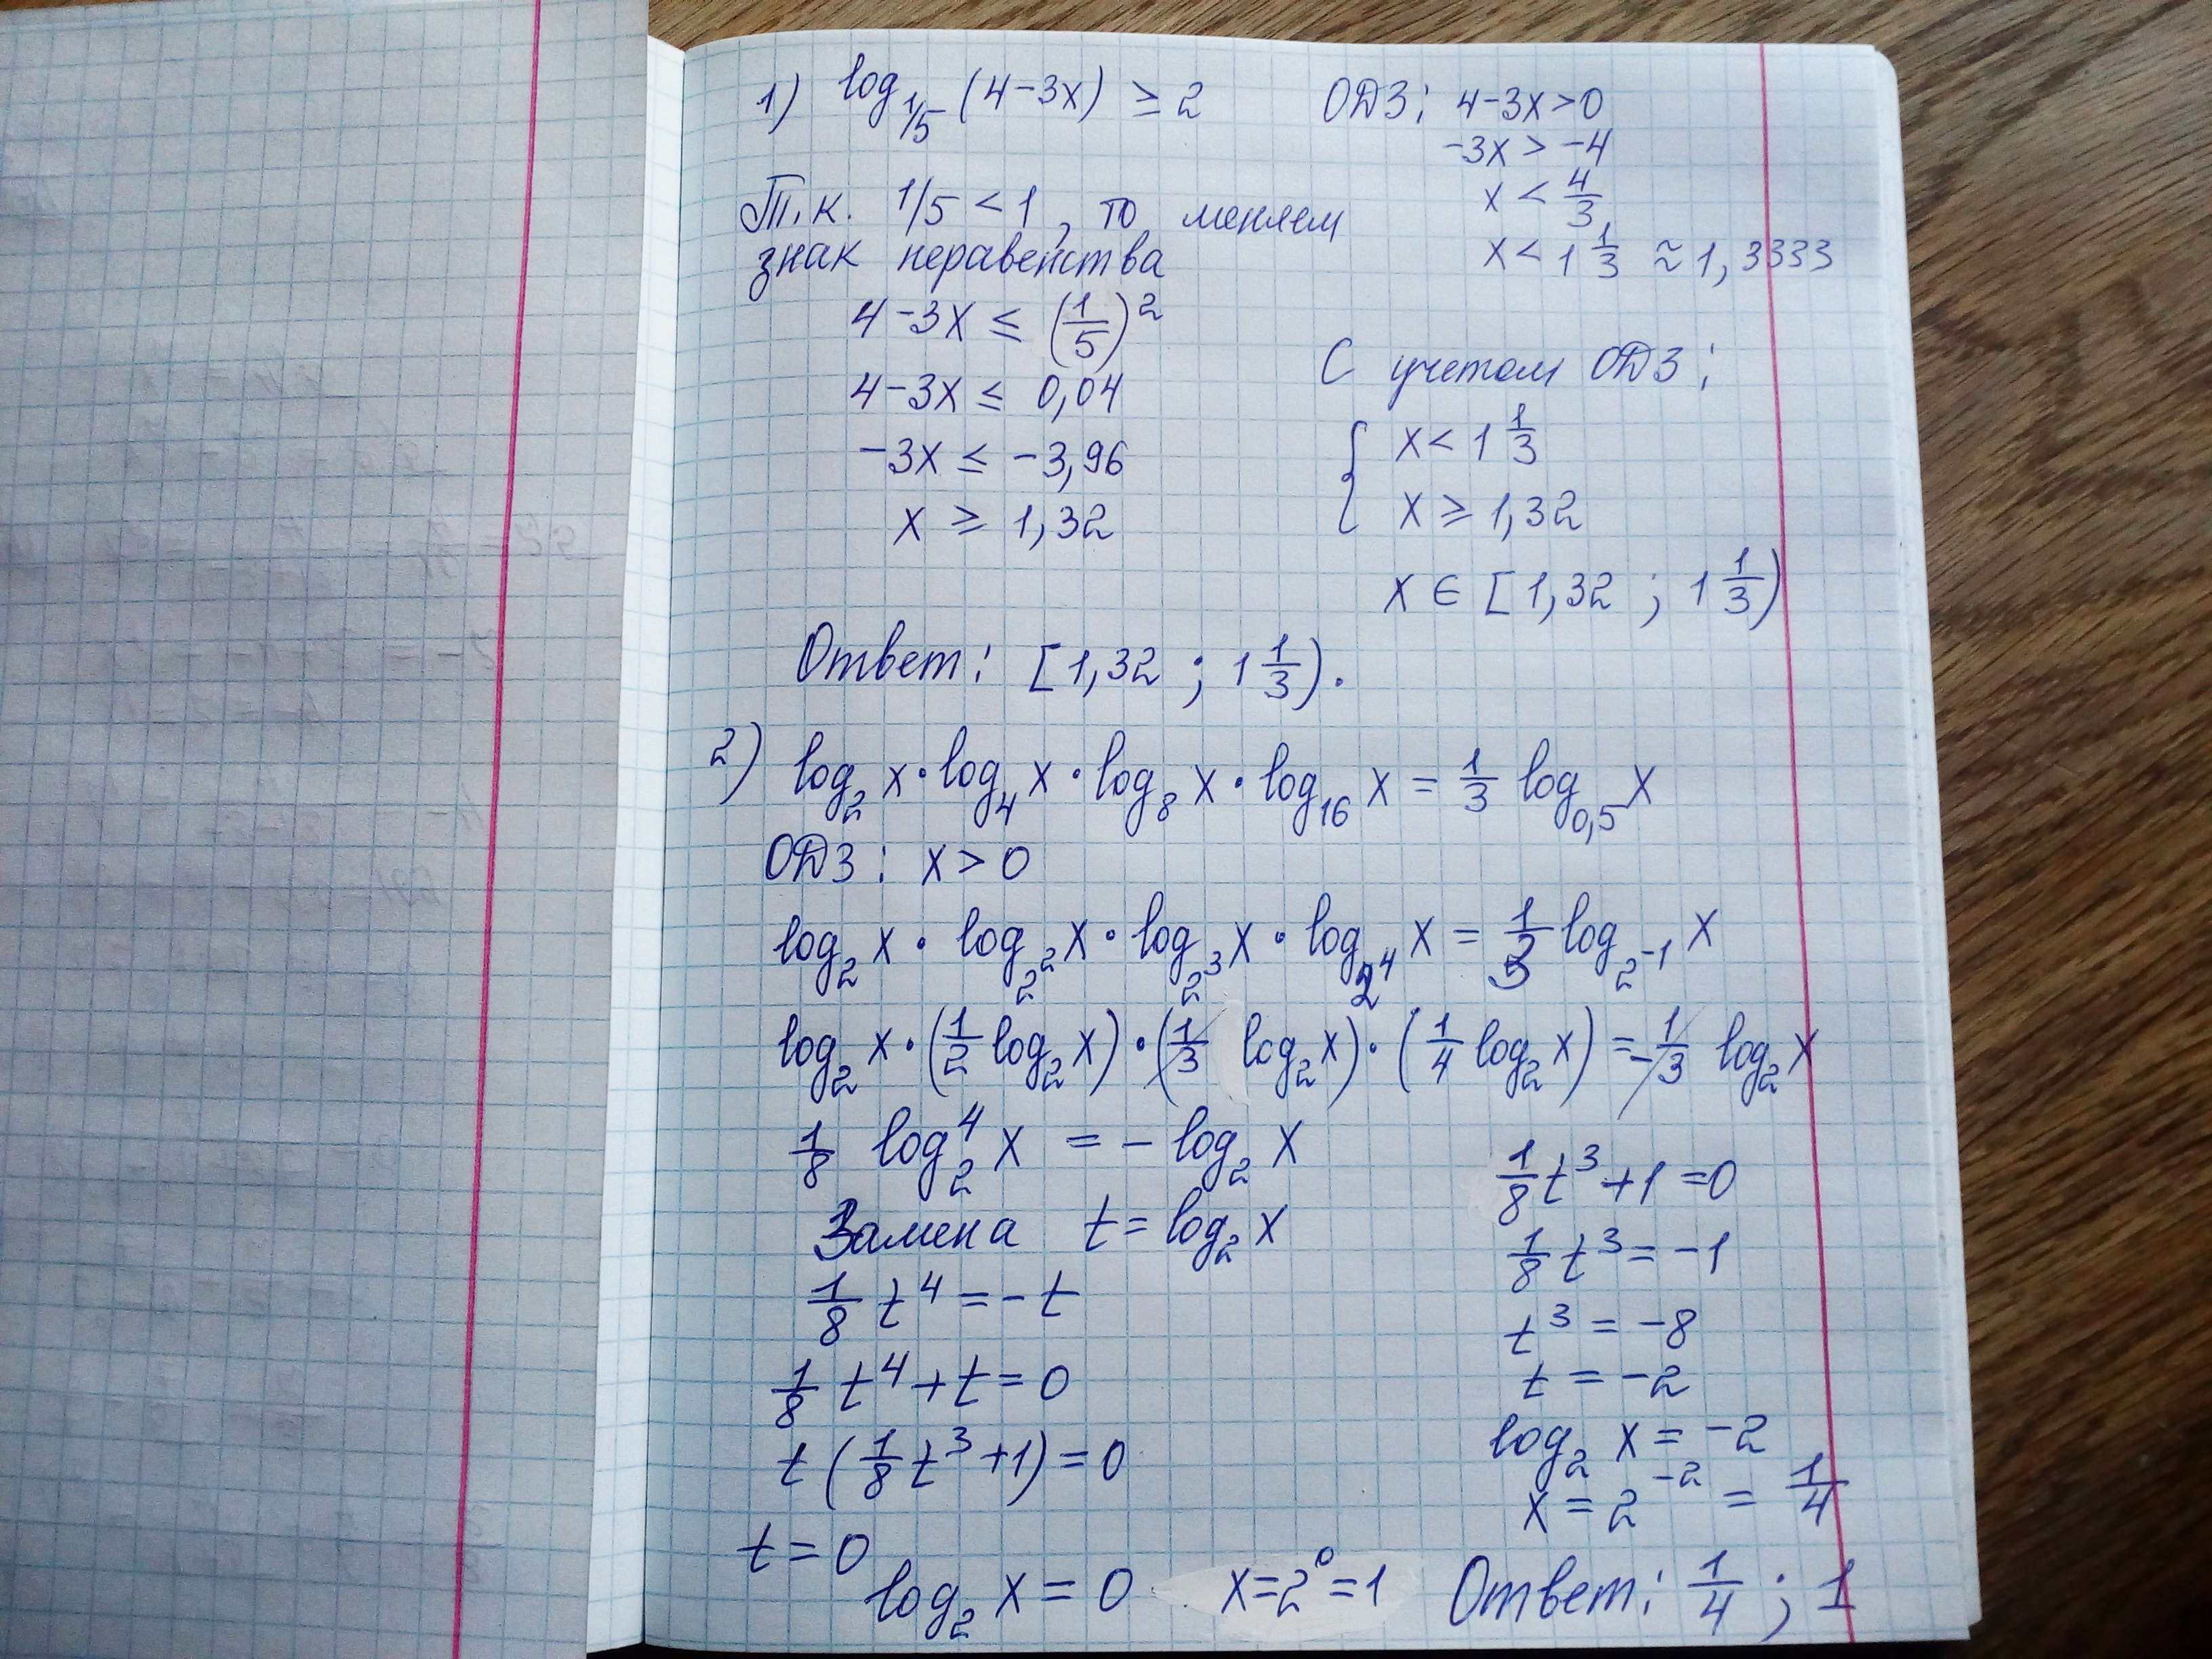 1) log_{1/5} (4-3x) ≥ 2
ОДЗ: 4-3x>0
-3x > -4
x < 4/3
x < 1 1/3 ≈ 1,3333
Т.к. 1/5 < 1, то меняем
знак неравенства
4-3x ≤ (1/5)^2
4-3x ≤ 0,04
-3x ≤ -3,96
x ≥ 1,32
С учетом ОДЗ:
{ x < 1 1/3
x ≥ 1,32
x ∈ [1,32 ; 1 1/3)
Ответ: [1,32 ; 1 1/3).
2) log_2 x · log_4 x · log_8 x · log_16 x = 1/3 log_{0,5} x
ОДЗ: x > 0
log_2 x · log_{2^2} x · log_{2^3} x · log_{2^4} x = 1/3 log_{2^{-1}} x
log_2 x · (1/2 log_2 x) · (1/3 log_2 x) · (1/4 log_2 x) = -1/3 log_2 x
1/8 log_2^4 x = - log_2 x
Замена t = log_2 x
1/8 t^4 = -t
1/8 t^4 + t = 0
t (1/8 t^3 + 1) = 0
t = 0
log_2 x = 0 x = 2^0 = 1
1/8 t^3 + 1 = 0
1/8 t^3 = -1
t^3 = -8
t = -2
log_2 x = -2
x = 2^{-2} = 1/4
Ответ: 1/4 ; 1